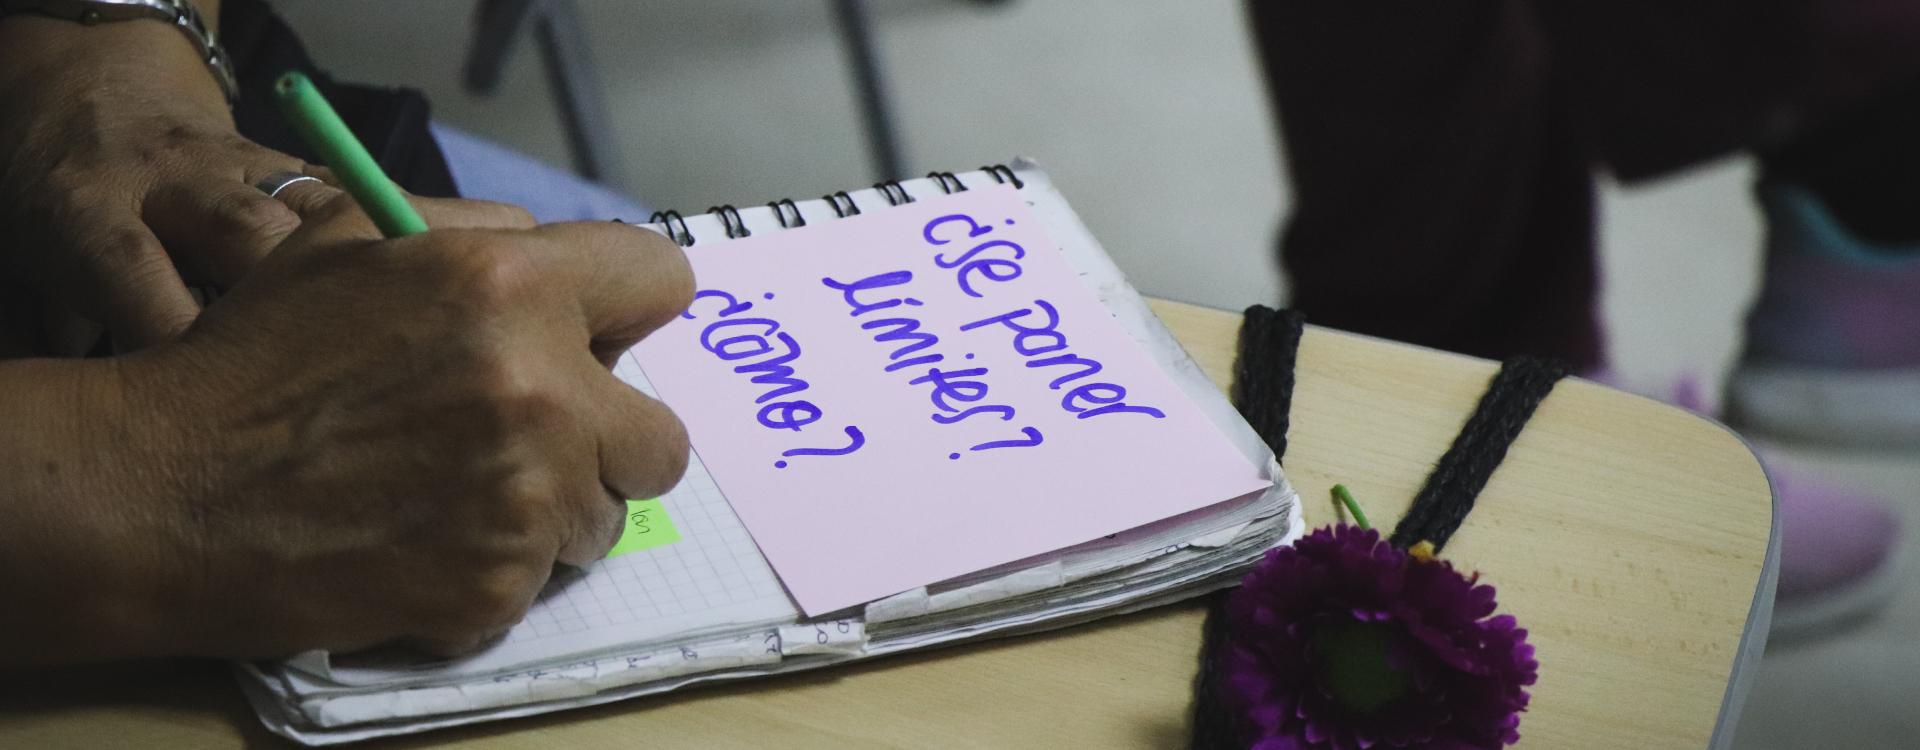 ¿Se poner
límites?
¿Cómo?